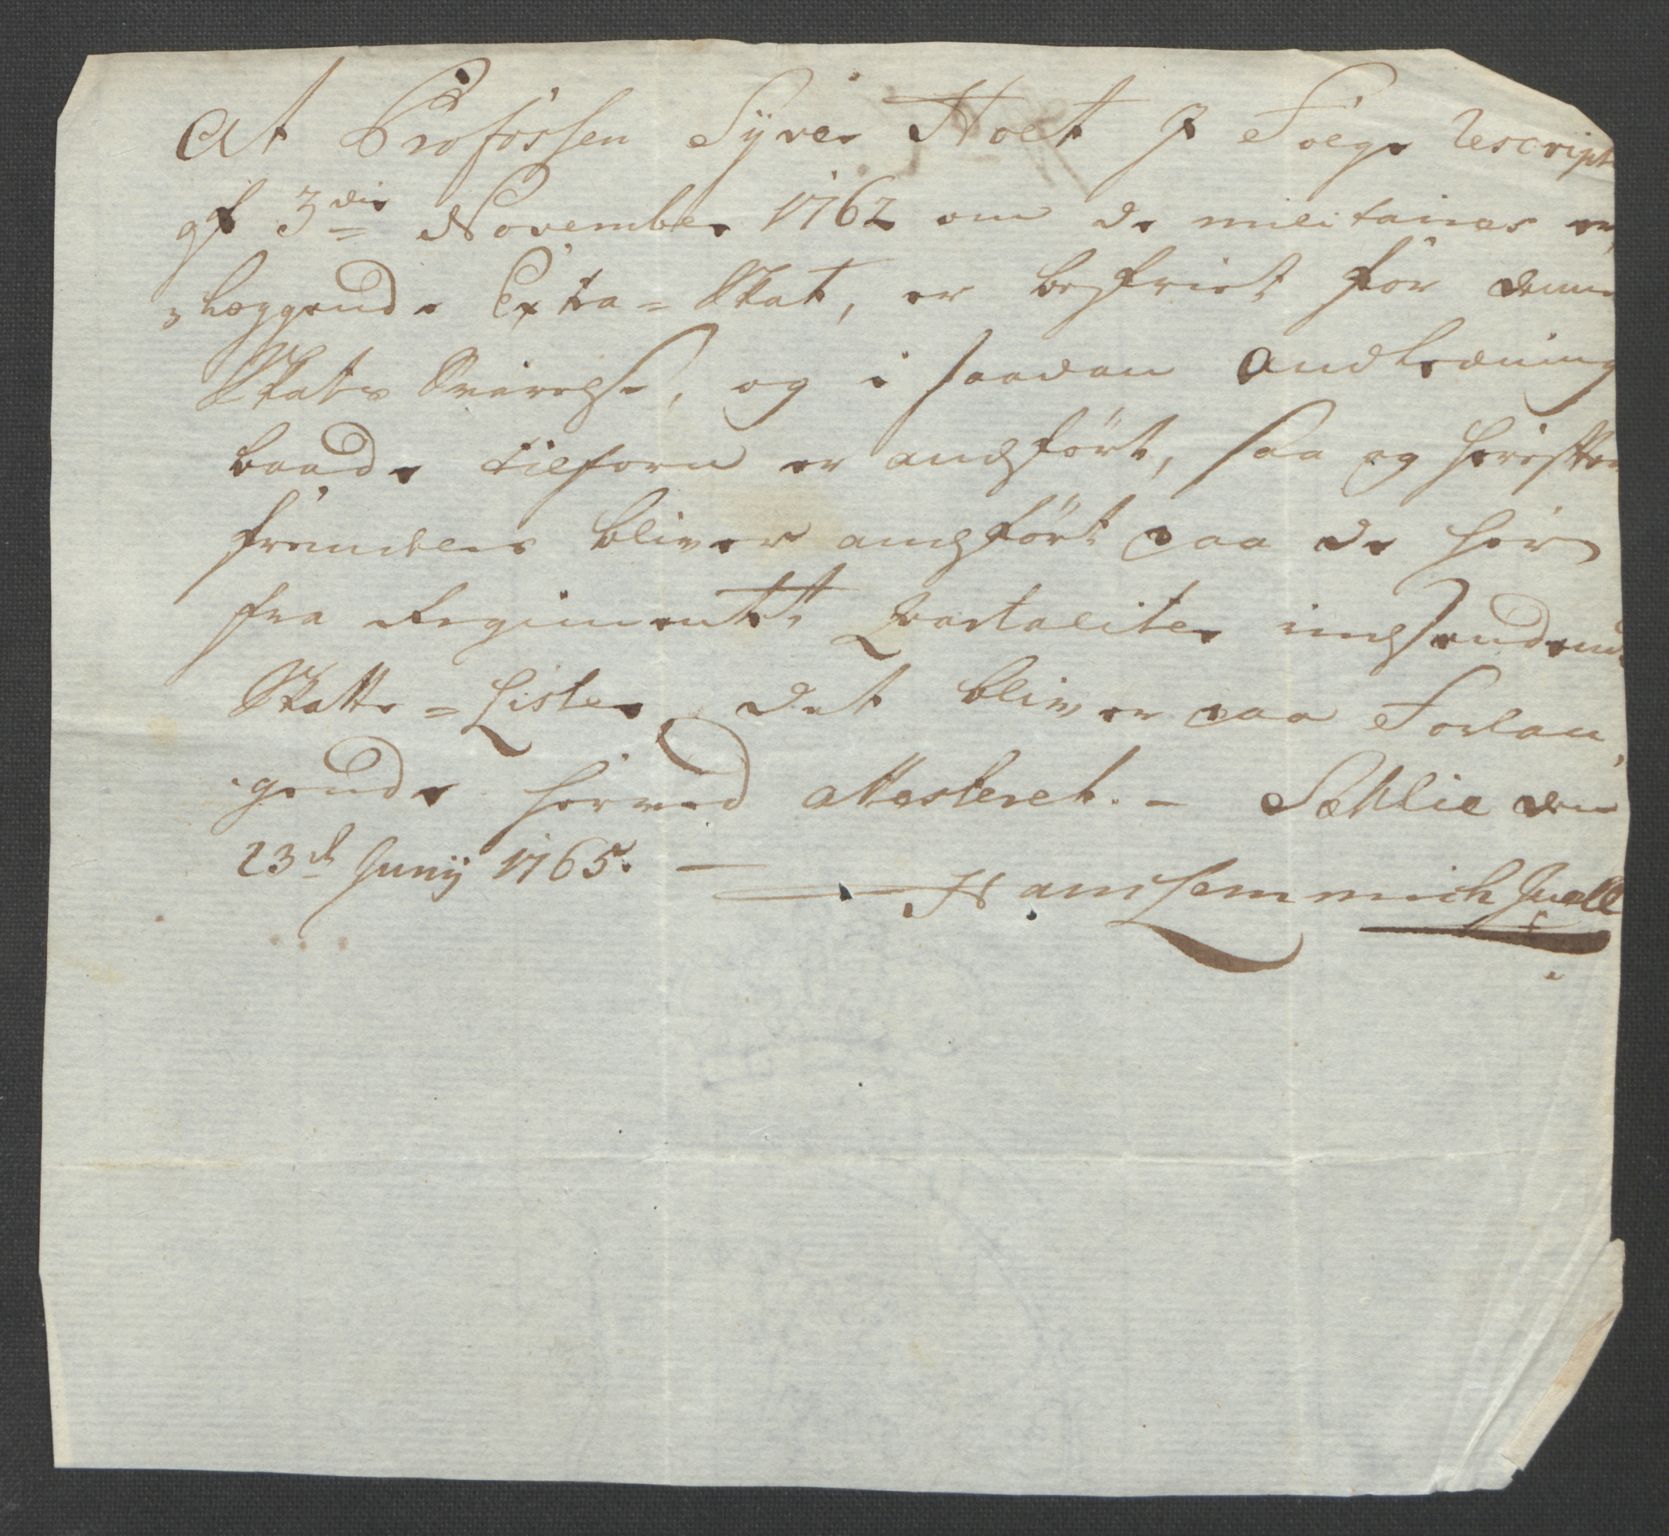 At Profossen Syver Holt J Følge Rescript
af 3die November 1762 om de militaires er
læggende Extra=Skat, er befriet for denne
Skats Svarelse, og i saadan Andledning
baade tilforn er andført, saa og herefter
fremdeles bliver andført paa de her
fra Regimentet Qvartaliter indsendende
Skatte=Lister, det bliver paa Forlan
gende herved attesteret. – Sæhlie den
23de Junij 1765. – Hans Lemmich Juell